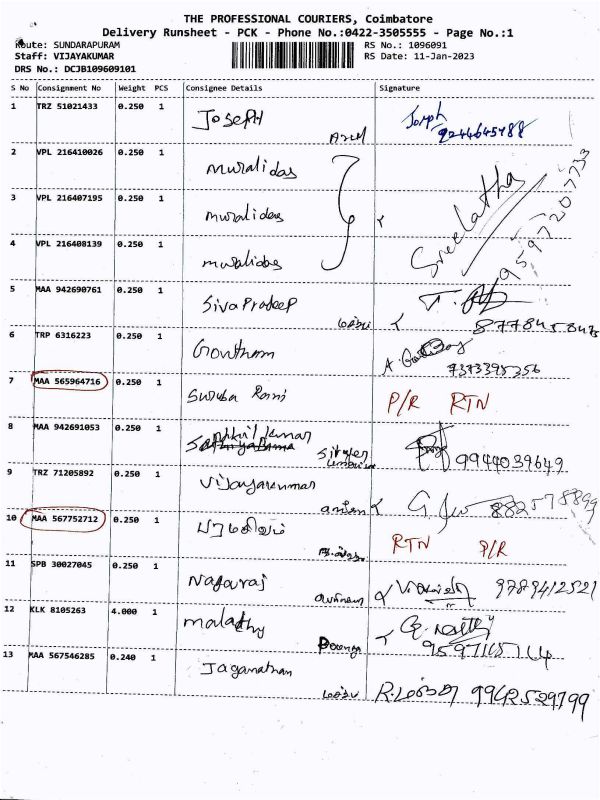 THE PROFESSIONAL COURIERS, Coimbatore
Delivery Runsheet - PCK - Phone No.:0422-3505555 - Page No.:1
Route: SUNDARAPURAM RS No.: 1096091
Staff: VIJAYAKUMAR RS Date: 11-Jan-2023
DRS No.: DCJB109609101
S No Consignment No Weight PCS Consignee Details Signature
1 TRZ 51021433 0.250 1 Joseph Joseph
9244645988
2 VPL 216410026 0.250 1 muralidas
3 VPL 216407195 0.250 1 muralidas Sreelatha 9597207733
4 VPL 216408139 0.250 1 muralidas
5 MAA 942690761 0.250 1 Siva Pradeep
6 TRP 6316223 0.250 1 Goutham
7373395256
7 MAA 565964716 0.250 1 Suruba Rani P/R RTN
8 MAA 942691053 0.250 1 9944039649
9 TRZ 71205892 0.250 1 Vijayakumar
10 MAA 567752712 0.250 1 RTN P/R
11 SPB 30027045 0.250 1 Nagaraj 9789412521
12 KLK 8105263 4.000 1 malathy
13 MAA 567546285 0.240 1 Jaganathan 9942529799